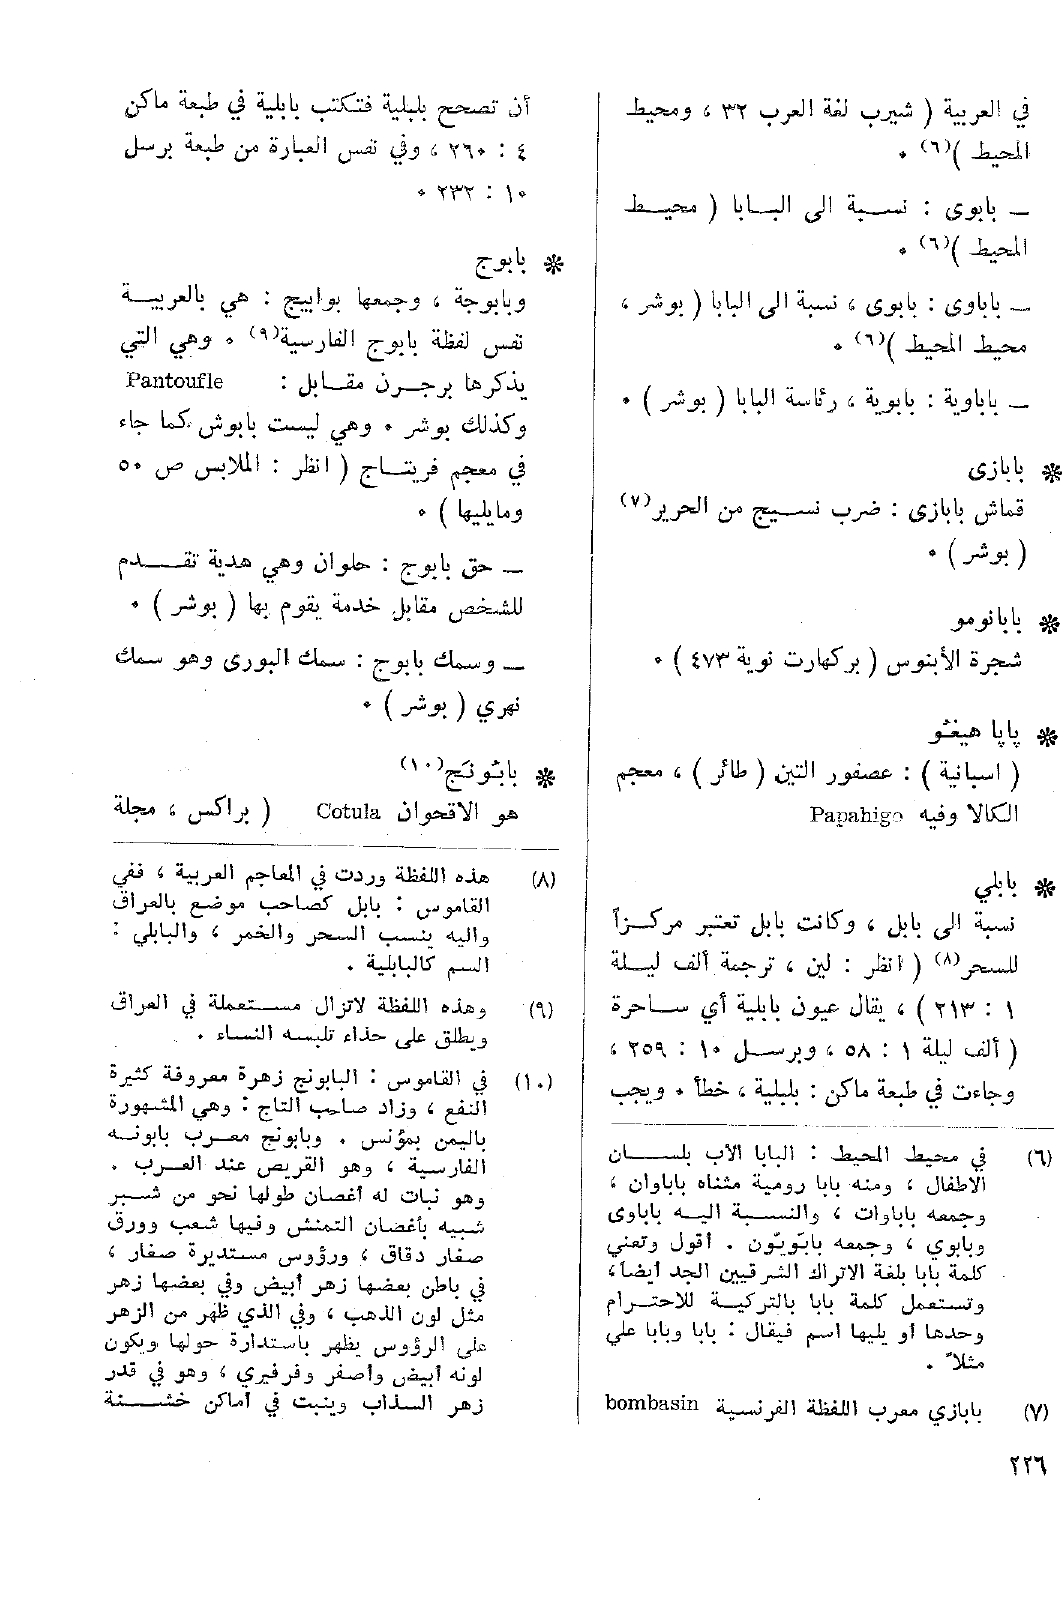 في العربية ( شيرب لغة العرب ٣٢ ، ومحيط
المحيط )(٦) ٠
ــ بابوى : نسبة الى البابا ( محيط
المحيط )(٦) ٠
ــ باباوى : بابوى ، نسبة الى البابا ( بوشر ،
محيط المحيط )(٦) ٠
ــ باباوية : بابوية ، رئاسة البابا ( بوشر ) ٠
❋ بابازى
قماش بابازى : ضرب نسيج من الحرير(٧)
( بوشر ) ٠
❋ بابانومو
شجرة الأبنوس ( بركهارت نوبة ٤٧٣ ) ٠
❋ پاپا هيغثو
( اسبانية ) : عصفور التين ( طائر ) ، معجم
الكالا وفيه Papahigo
❋ بابلي
نسبة الى بابل ، وكانت بابل تعتبر مركزاً
للسحر(٨) ( انظر : لين ، ترجمة ألف ليلة
١ : ٢١٣ ) ، يقال عيون بابلية أي ساحرة
( ألف ليلة ١ : ٥٨ ، وبرسل ١٠ : ٢٥٩ ،
وجاءت في طبعة ماكن : بلبلية ، خطأ ٠ ويجب
(٦) في محيط المحيط : البابا الأب بلسان
الاطفال ، ومنه بابا رومية مثناه باباوان ،
وجمعه باباوات ، والنسبة اليه باباوى
وبابوي ، وجمعه بابَوِيّون . أقول وتعني
كلمة بابا بلغة الاتراك الشرقيين الجد أيضا ،
وتستعمل كلمة بابا بالتركية للاحترام
وحدها أو يليها اسم فيقال : بابا وبابا علي
مثلا ً .
(٧) بابازي معرب اللفظة الفرنسية bombasin
٢٢٦
أن تصحح بلبلية فتكتب بابلية في طبعة ماكن
٤ : ٢٦٠ ، وفي نفس العبارة من طبعة برسل
١٠ : ٢٣٢ ٠
❋ بابوج
وبابوجة ، وجمعها بوابيج : هي بالعربية
نفس لفظة بابوج الفارسية(٩) ٠ وهي التي
يذكرها برجرن مقابل : Pantoufle
وكذلك بوشر ٠ وهي ليست بابوش كما جاء
في معجم فريتاج ( انظر : الملابس ص ٥٠
ومايليها ) ٠
ــ حق بابوج : حلوان وهي هدية تقدم
للشخص مقابل خدمة يقوم بها ( بوشر ) ٠
ــ وسمك بابوج : سمك البورى وهو سمك
نهري ( بوشر ) ٠
❋ بابُونَج(١٠)
هو الاقحوان Cotula ( براكس ، مجلة
(٨) هذه اللفظة وردت في المعاجم العربية ، ففي
القاموس : بابل كصاحب موضع بالعراق
واليه ينسب السحر والخمر ، والبابلي :
السم كالبابلية .
(٩) وهذه اللفظة لاتزال مستعملة في العراق
ويطلق على حذاء تلبسه النساء .
(١٠) في القاموس : البابونج زهرة معروفة كثيرة
النفع ، وزاد صاحب التاج : وهي المشهورة
باليمن بمؤنس . وبابونج معرب بابونه
الفارسية ، وهو القريص عند العرب .
وهو نبات له أغصان طولها نحو من شبر
شبيه بأغصان التمنش وفيها شعب وورق
صغار دقاق ، ورؤوس مستديرة صغار ،
في باطن بعضها زهر أبيض وفي بعضها زهر
مثل لون الذهب ، وفي الذي ظهر من الزهر
على الرؤوس يظهر باستدارة حولها ويكون
لونه أبيض وأصفر وفرفيري ، وهو في قدر
زهر السذاب وينبت في أماكن خشنة